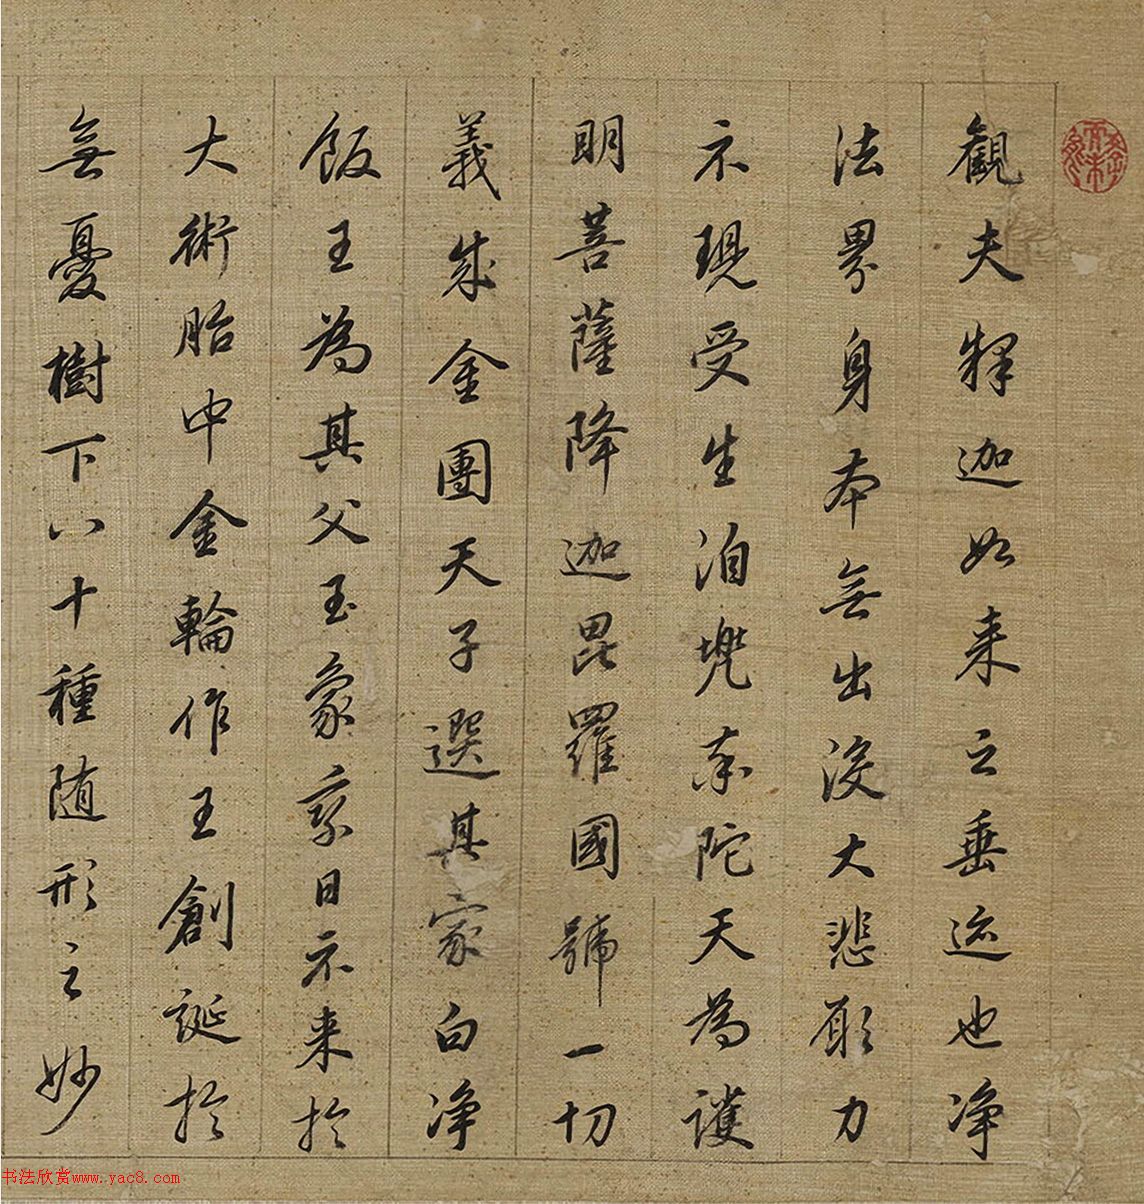 觀夫釋迦如来之垂迹也净
法界身本無出没大悲願力
示現受生洎兜率陀天為護
明菩薩降迦毘羅國號一切
義成金團天子選其家白净
飯王為其父玉象乘日示来於
大術胎中金輪作王創誕於
無憂樹下八十種随形之妙
书法欣赏www.yac8.com